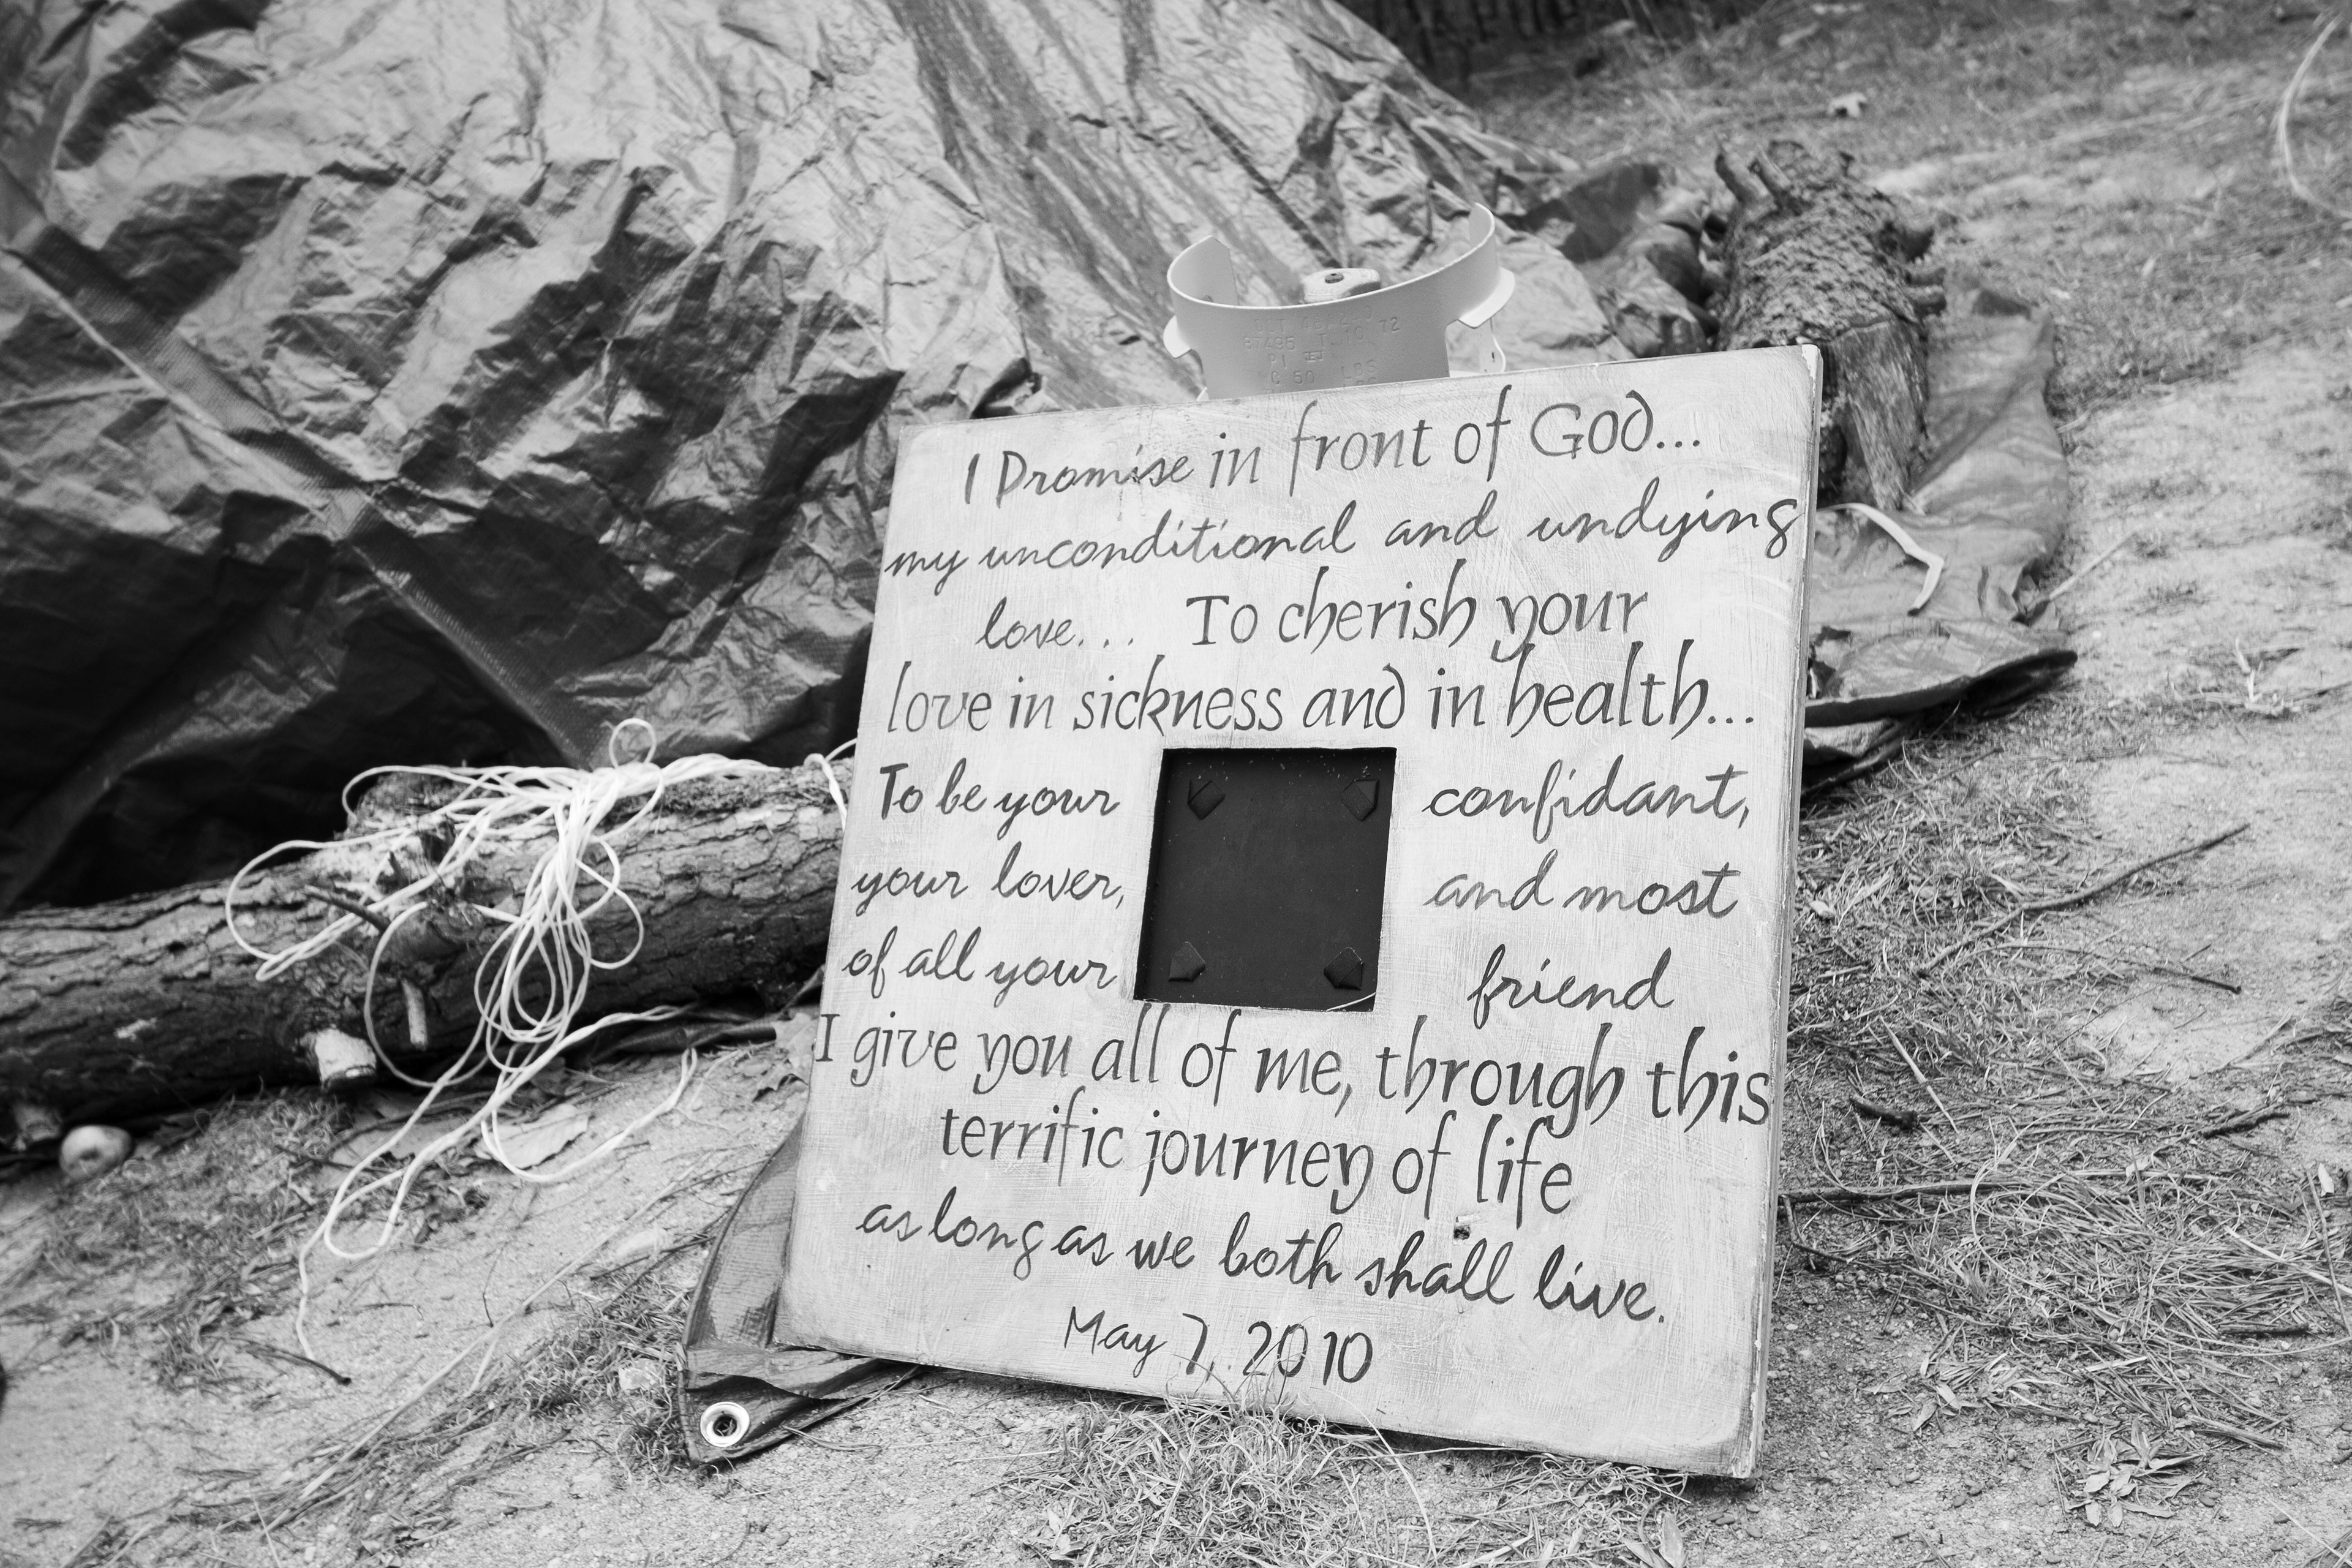 I Promise in front of God...
my unconditional and undying
love... To cherish your
love in sickness and in health...
To be your confidant,
your lover, and most
of all your friend
I give you all of me, through this
terrific journey of life
as long as we both shall live.
May 7, 2010